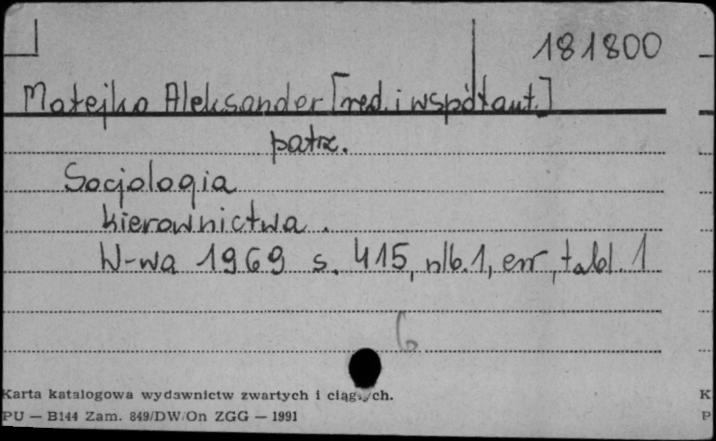 181800
Matejko Aleksander [red. i współaut.]
patrz.
Socjologia
kierownictwa.
W-wa 1969 s. 415, nlb. 1, err, tabl. 1
6
Karta katalogowa wydawnictw zwartych i
PU — B144 Zam. 849/DW/On ZGG — 1991
K
P